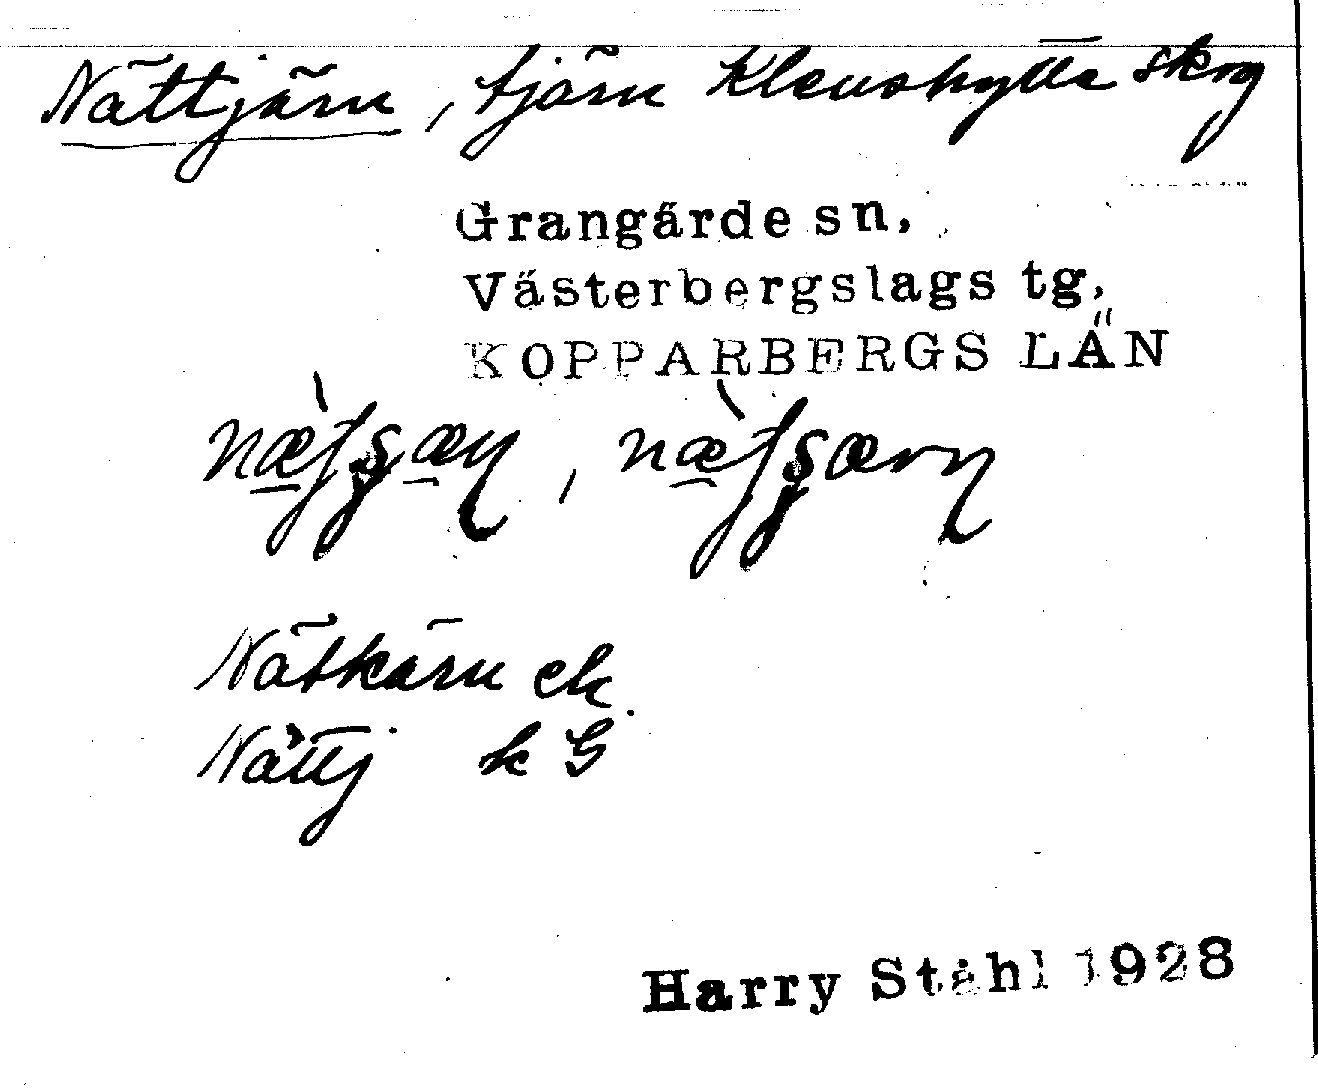 Nättjärn, tjärn Klenshytte skog
Grangärde sn,
Västerbergslags tg,
KOPPARBERGS LÄN
Nätkärn ek
Nättj k G
Harry Ståhl 1928